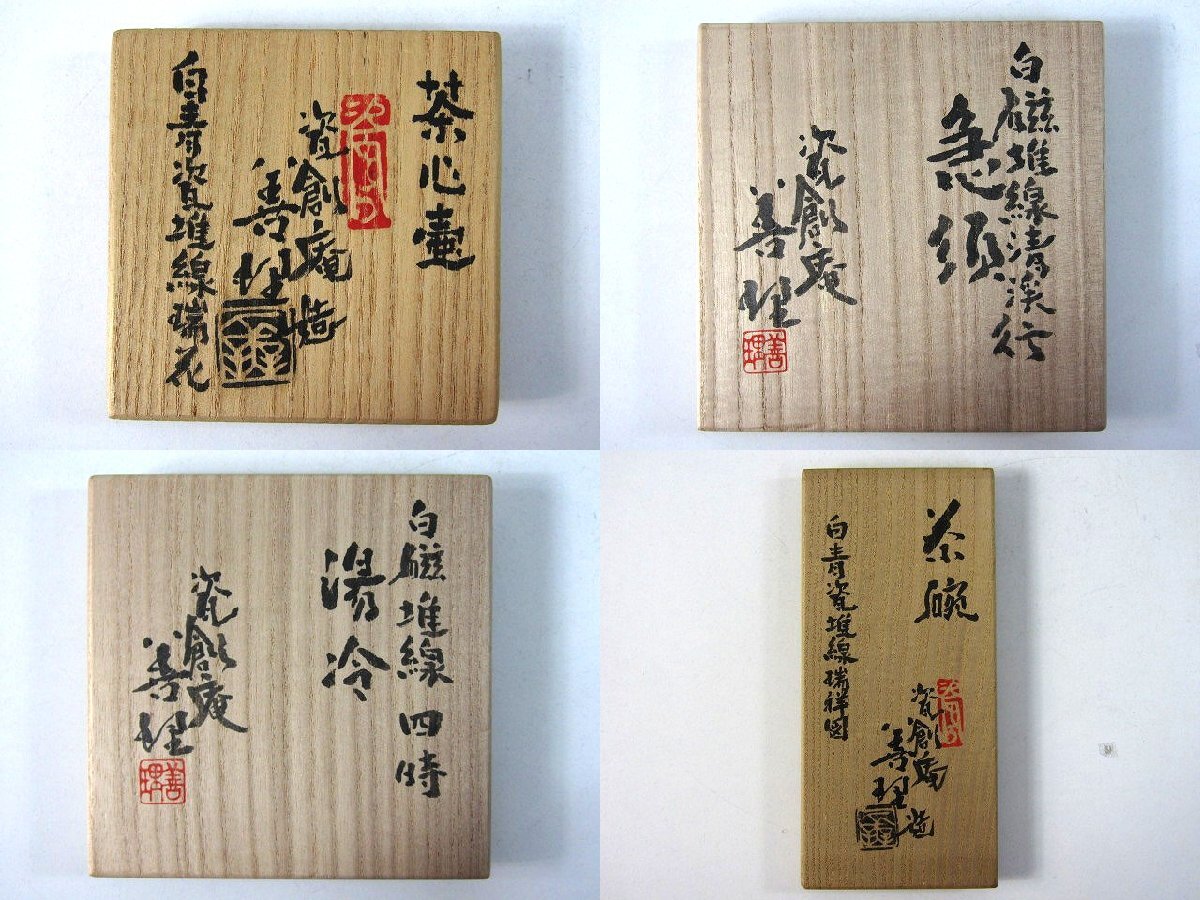 茶心壷
瓷創庵造
善理
白青瓷堆線瑞花
白磁堆線清渓行
急須
瓷創庵
善理
善理
白磁堆線四時
湯冷
瓷創庵
善理
善理
茶碗
瓷創庵造
善理
白青瓷堆線瑞祥図